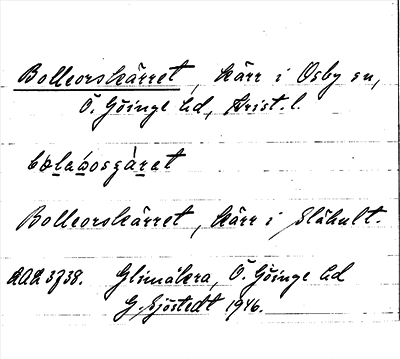 Bolleorskärret, kärr i Osby sn,
Ö. Göinge hd, Krist. l.
Bolleorskärret, kärr i Slähult.
Glimåkra, Ö. Göinge hd
G. Sjöstedt 1946.